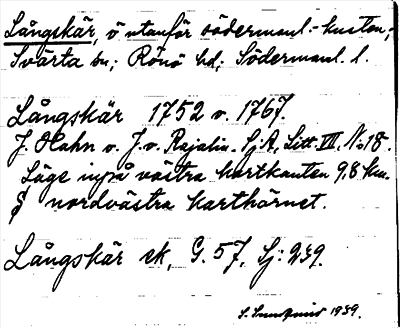 Långskär, ö utanför södermanl.-kusten;
Svärta sn; Rönö hd; Södermanl. l.
Långskär 1752 o. 1767.
J. Hahn o. J. v. Rajalin. SjA, Litt. VIII, N:o 18.
Läge inpå västra kartkanten 9,8 km.
§ nordvästra karthörnet.
Långskär ek, G. 57, Sj: 239.
S. 1939.